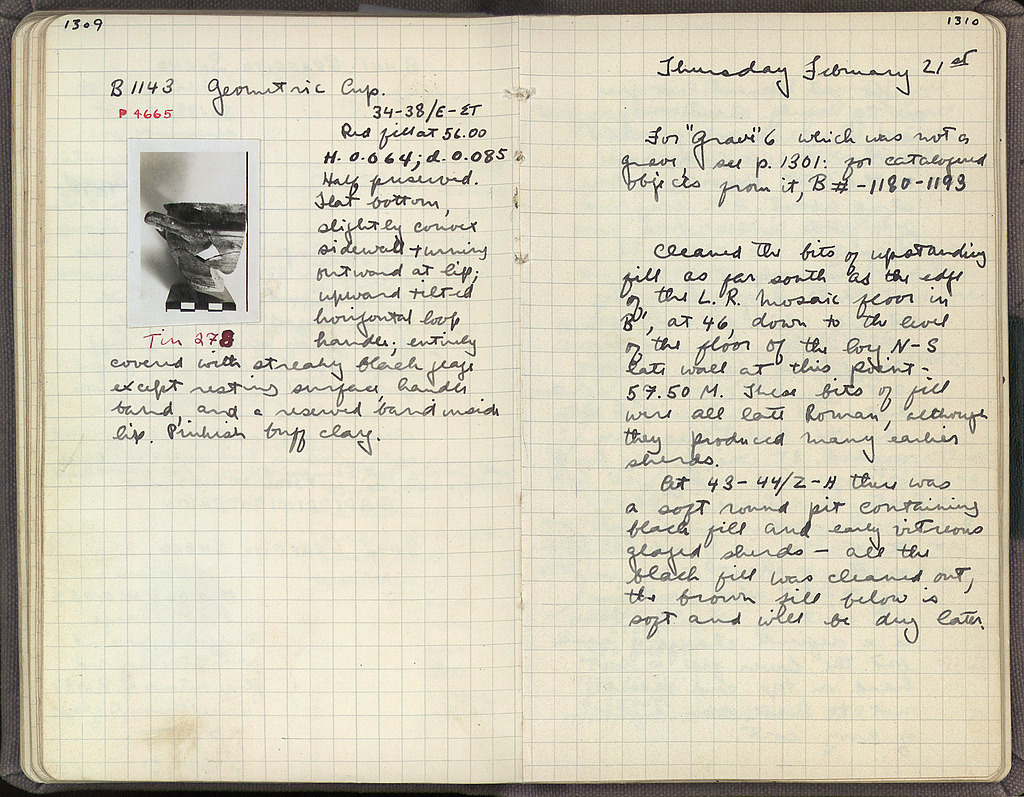 1309
B 1143 Geometric Cup.
P 4665
34-38/E-ΣΤ
Red fill at 56.00
H. 0.064; d. 0.085
Half preserved.
Flat bottom,
slightly convex
sidewall turning
outward at lip;
upward tilted
horizontal loop
handle; entirely
Tin 278
covered with streaky black glaze
except resting surface, handle
band, and a reserved band inside
lip. Pinkish buff clay.
1310
Thursday February 21st
For "Grave" 6 which was not a
grave, see p. 1301: for catalogued
objects from it, B # -1180-1193
Cleaned the bits of upstanding
fill as far south as the edge
of the L. R. Mosaic floor in
at 46, down to the level
of the floor of the N-S
late wall at this point -
57.50 M. These bits of fill
were all late Roman, although
they produced many earlier
sherds.
At 43-44/Z-H there was
a soft round pit containing
black fill and early vitreous
glazed sherds - all the
black fill was cleaned out,
the brown fill below is
soft and will be dug later.